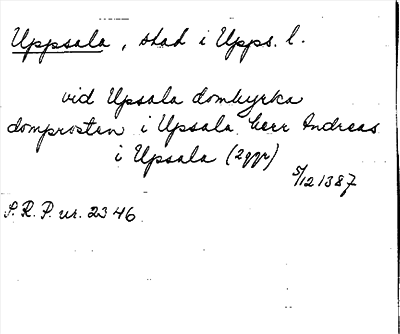 Uppsala, stad i Upps. l.
vid Upsala domkyrka
domprosten i Upsala herr Andreas
i Upsala (2ggr)
5/12 1387
S.R.P. nr. 2346.